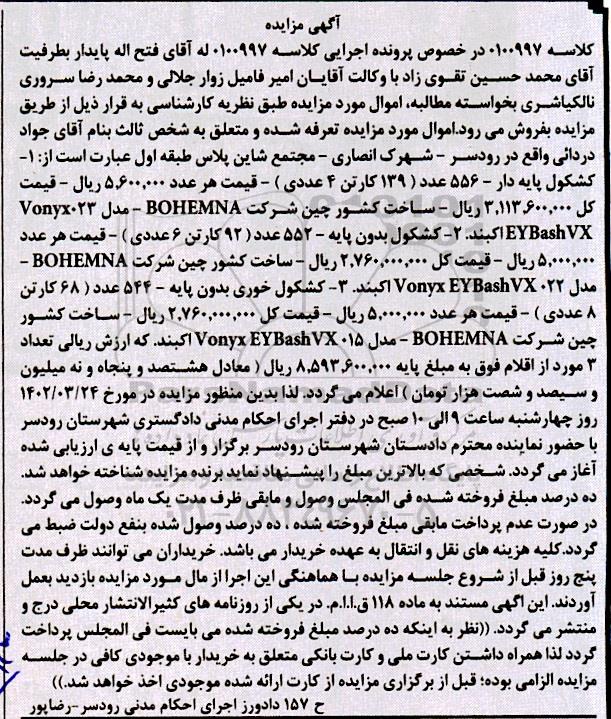 آگهی مزایده
کلاسه ۰۱۰۰۹۹۷ در خصوص پرونده اجرایی کلاسه ۰۱۰۰۹۹۷ له آقای فتح اله پایدار بطرفیت
آقای محمد حسین تقوی زاد با وکالت آقایان امیر فامیل زوار جلالی و محمد رضا سروری
نالکیاشری بخواسته مطالبه، اموال مورد مزایده طبق نظریه کارشناسی به قرار ذیل از طریق
مزایده بفروش می رود.اموال مورد مزایده تعرفه شده و متعلق به شخص ثالث بنام آقای جواد
دردائی واقع در رودسر - شهرک انصاری - مجتمع شاین پلاس طبقه اول عبارت است از: ۱-
کشکول پایه دار - ۵۵۶ عدد ( ۱۳۹ کارتن ۴ عددی ) - قیمت هر عدد ۵,۶۰۰,۰۰۰ ریال - قیمت
کل ۳,۱۱۳,۶۰۰,۰۰۰ ریال - ساخت کشور چین شرکت BOHEMNA - مدل Vonyx۰۲۳
EYBashVX اکبند. ۲- کشکول بدون پایه - ۵۵۲ عدد ( ۹۲ کارتن ۶ عددی ) - قیمت هر عدد
۵,۰۰۰,۰۰۰ ریال - قیمت کل ۲,۷۶۰,۰۰۰,۰۰۰ ریال - ساخت کشور چین شرکت BOHEMNA -
مدل ۰۲۲ Vonyx EYBashVX اکبند. ۳- کشکول خوری بدون پایه - ۵۴۴ عدد ( ۶۸ کارتن
۸ عددی ) - قیمت هر عدد ۵,۰۰۰,۰۰۰ ریال - قیمت کل ۲,۷۶۰,۰۰۰,۰۰۰ ریال - ساخت کشور
چین شرکت BOHEMNA - مدل ۰۱۵ Vonyx EYBashVX اکبند. که ارزش ریالی تعداد
۳ مورد از اقلام فوق به مبلغ پایه ۸,۵۹۳,۶۰۰,۰۰۰ ریال ( معادل هشتصد و پنجاه و نه میلیون
و سیصد و شصت هزار تومان ) اعلام می گردد. لذا بدین منظور مزایده در مورخ ۱۴۰۲/۰۳/۲۴
روز چهارشنبه ساعت ۹ الی ۱۰ صبح در دفتر اجرای احکام مدنی دادگستری شهرستان رودسر
با حضور نماینده محترم دادستان شهرستان رودسر برگزار و از قیمت پایه ی ارزیابی شده
آغاز می گردد. شخصی که بالاترین مبلغ را پیشنهاد نماید برنده مزایده شناخته خواهد شد.
ده درصد مبلغ فروخته شده فی المجلس وصول و مابقی ظرف مدت یک ماه وصول می گردد.
در صورت عدم پرداخت مابقی مبلغ فروخته شده ، ده درصد وصول شده بنفع دولت ضبط می
گردد.کلیه هزینه های نقل و انتقال به عهده خریدار می باشد. خریداران می توانند ظرف مدت
پنج روز قبل از شروع جلسه مزایده با هماهنگی این اجرا از مال مورد مزایده بازدید بعمل
آوردند. این اگهی مستند به ماده ۱۱۸ ق.ا.ا.م. در یکی از روزنامه های کثیرالانتشار محلی درج و
منتشر می گردد. ((نظر به اینکه ده درصد مبلغ فروخته شده می بایست فی المجلس پرداخت
گردد لذا همراه داشتن کارت ملی و کارت بانکی متعلق به خریدار با موجودی کافی در جلسه
مزایده الزامی بوده؛ قبل از برگزاری مزایده از کارت ارائه شده موجودی اخذ خواهد شد.))
ح ۱۵۷ دادورز اجرای احکام مدنی رودسر-رضاپور